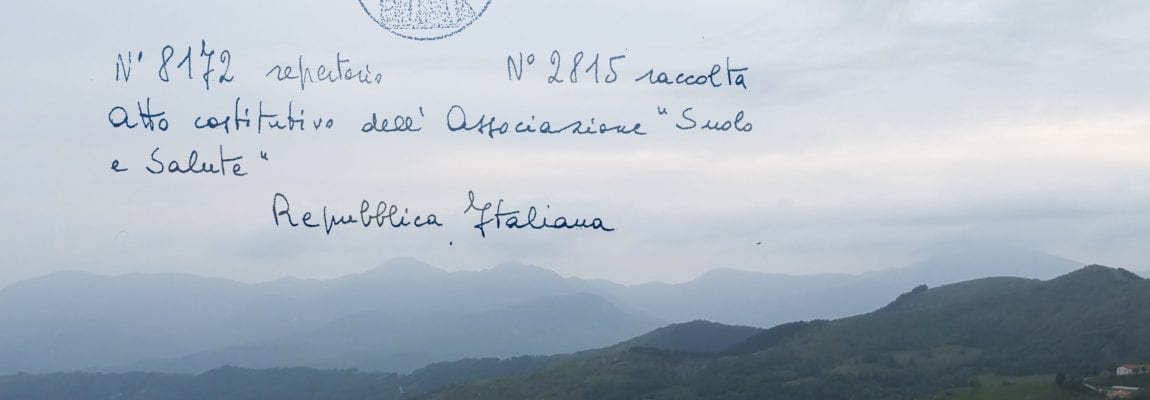 N° 8172 repertorio N° 2815 raccolta
Atto costitutivo dell' Associazione "Suolo
e Salute"
Repubblica Italiana